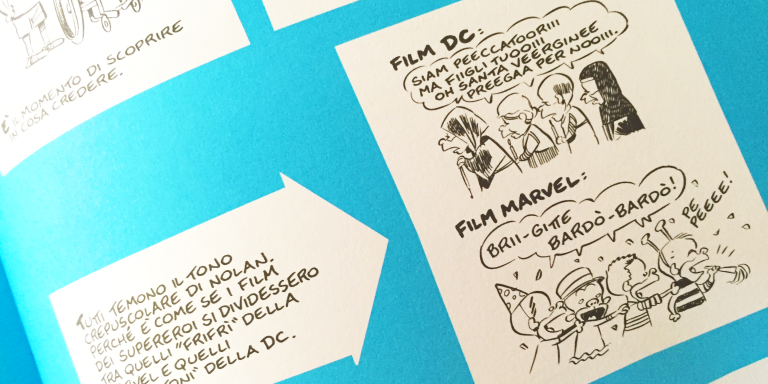 È IL MOMENTO DI SCOPRIRE
IN COSA CREDERE.
FILM DC:
SIAM PEECCATOORIII
MA FIIGLI TUOOIII
OH SANTA VEERGINEE
PREEGAA PER NOOIII.
FILM MARVEL:
BRII-GITTE
BARDÒ-BARDÒ!
PE
PEEEE!
TUTTI TEMONO IL TONO
CREPUSCOLARE DI NOLAN.
PERCHÉ È COME SE I FILM
DEI SUPEREROI SI DIVIDESSERO
TRA QUELLI "FRIFRÌ" DELLA
E QUELLI
DELLA DC.